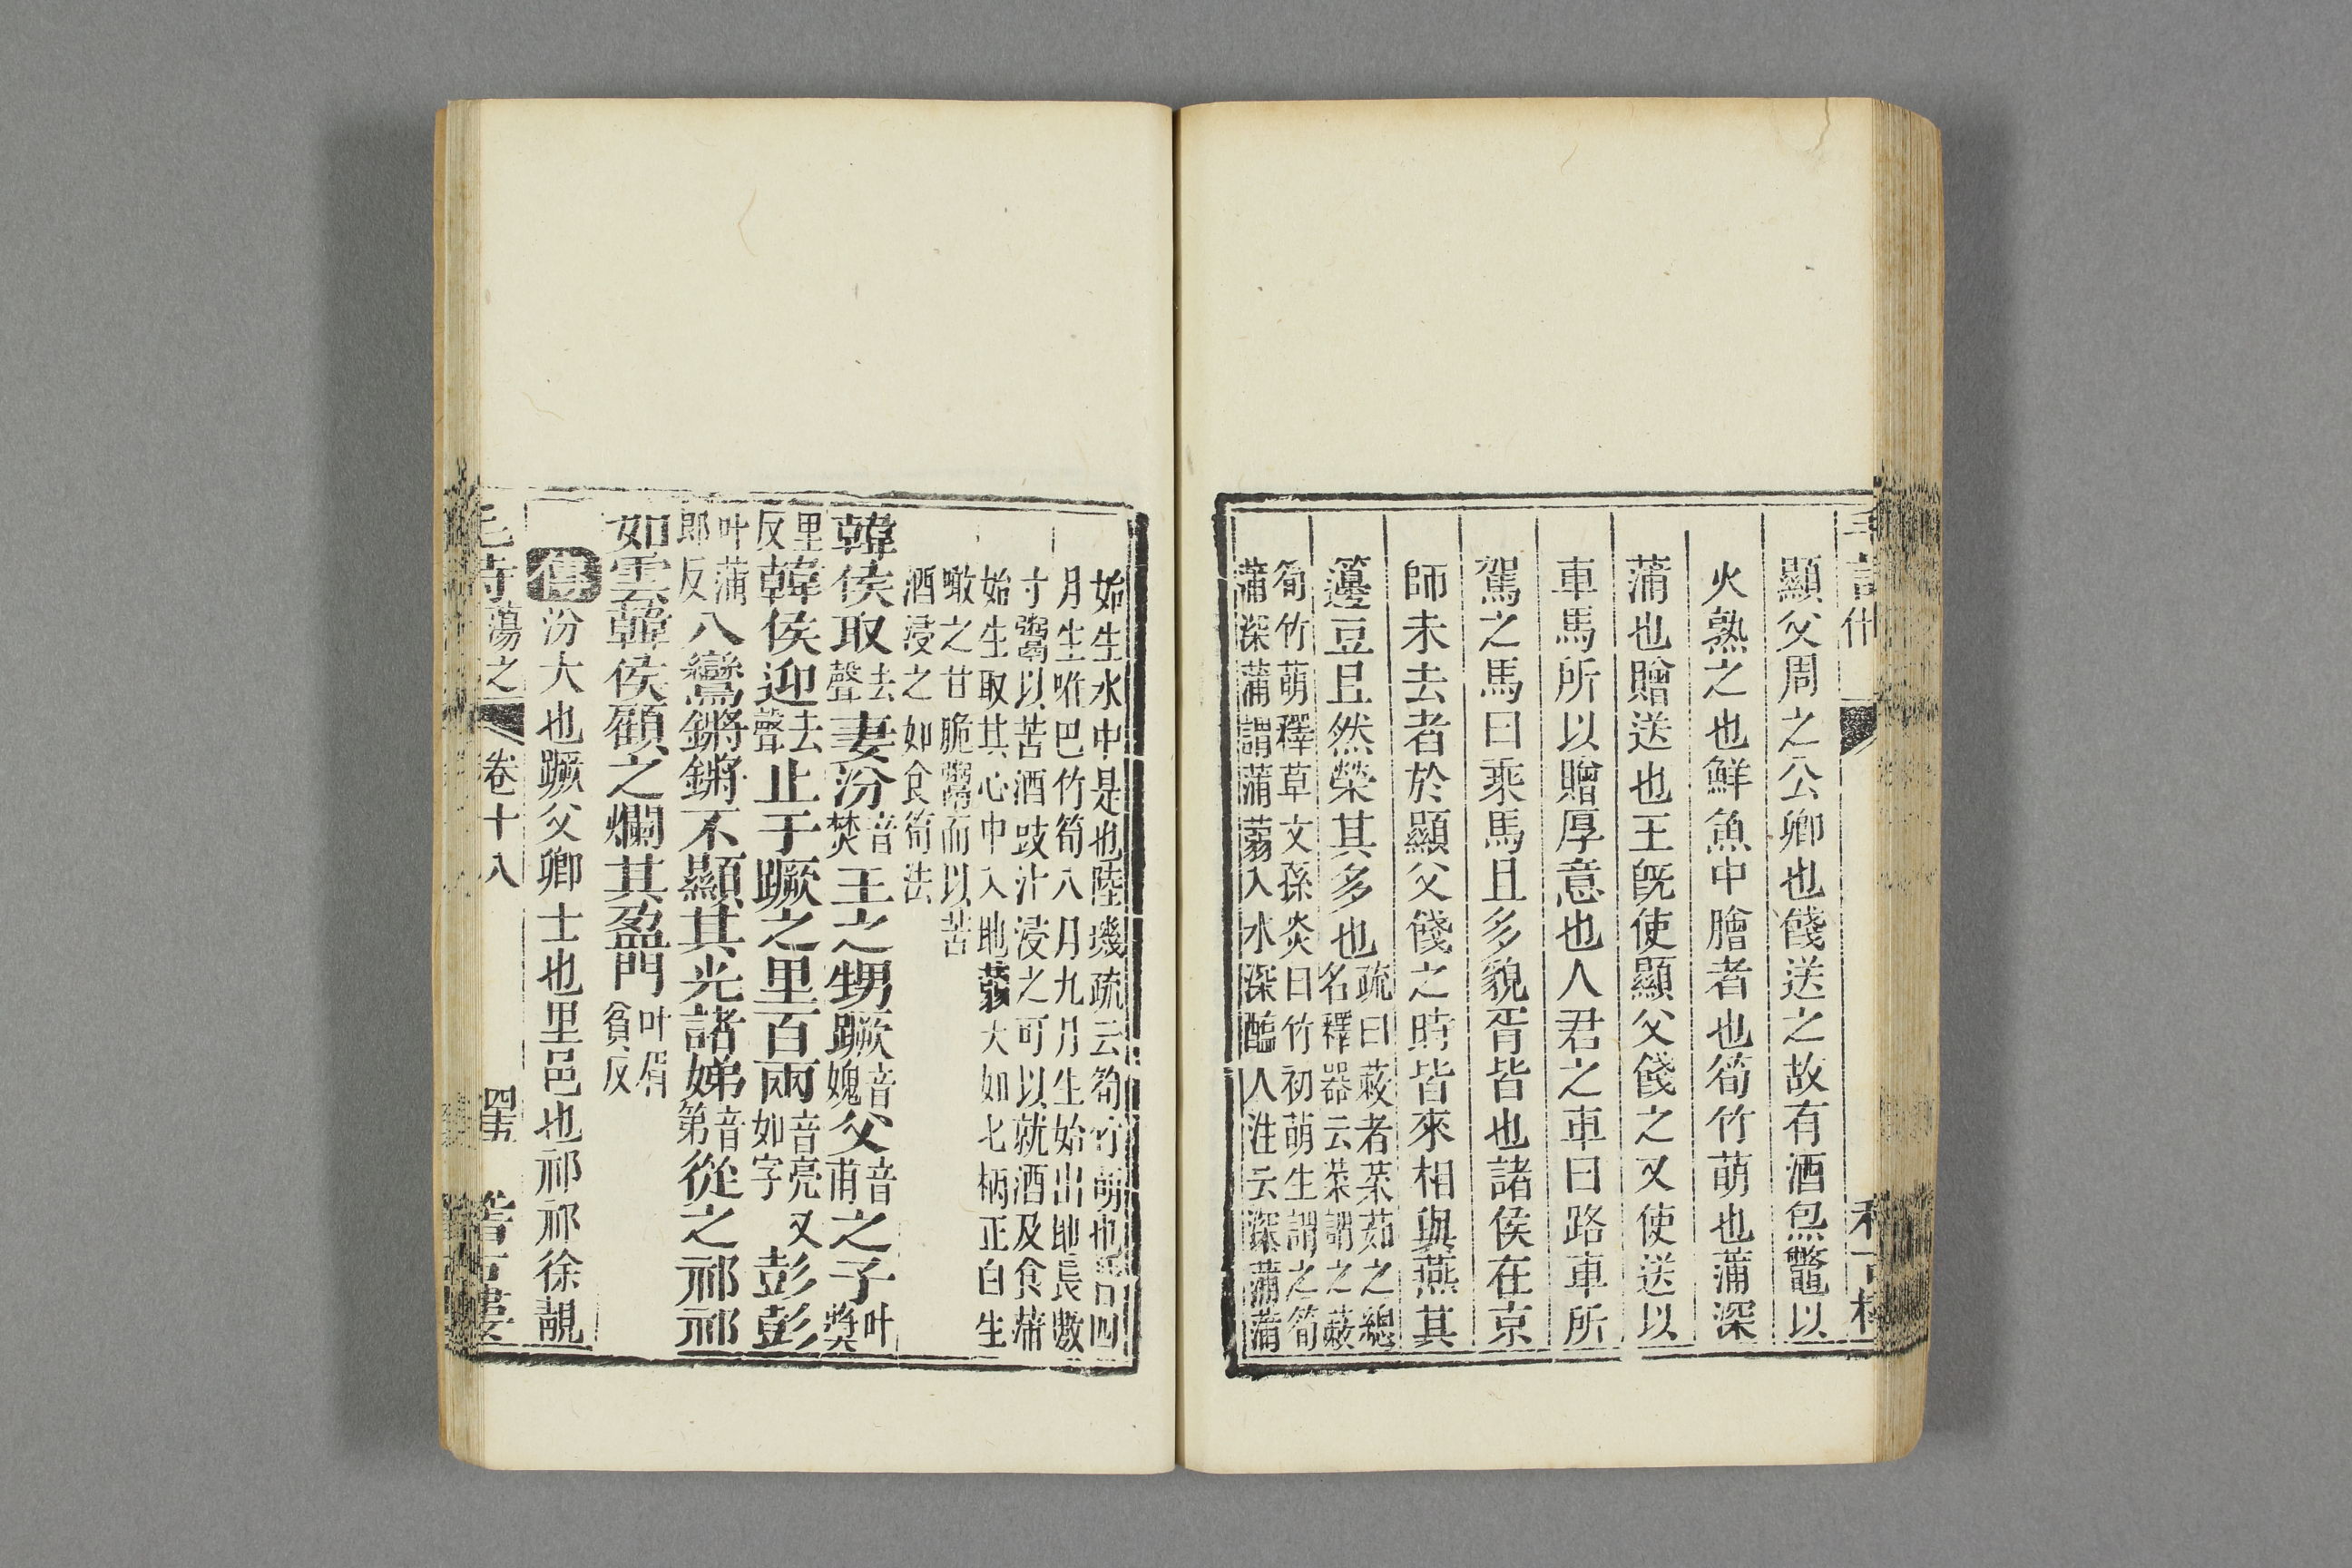 顯父周之公卿也餞送之故有酒炰鼈以
火熟之也鮮魚中膾者也筍竹萌也蒲深
蒲也贈送也王旣使顯父餞之又使送以
車馬所以贈厚意也人君之車曰路車所
駕之馬曰乘馬且多貌胥皆也諸侯在京
師未去者於顯父餞之時皆來相與燕其
籩豆且然榮其多也疏曰蔌者菜茹之總
名釋器云菜謂之蔌
筍竹萌釋草文孫炎曰竹初萌生謂之筍
蒲深蒲謂蒲蒻入水深醢人注云深蒲蒲
始生水中是也陸璣疏云筍竹萌也皆四
月生唯巴竹筍八月九月生始出地長數
寸鬻以苦酒豉汁浸之可以就酒及食蒲
始生取其心中入地蒻大如匕柄正白生
噉之甘脆鬻而以苦
酒浸之如食筍法
韓侯取去聲妻汾音焚王之甥蹶音媿父音甫之子叶奬
里反韓侯迎去聲止于蹶之里百兩音亮又如字彭彭
叶蒲郎反八鸞鏘鏘不顯其光諸娣音第從之祁祁
如雲韓侯顧之爛其盈門叶眉貧反
傳汾大也蹶父卿士也里邑也祁祁徐靚
毛詩蕩之 卷十八 四五